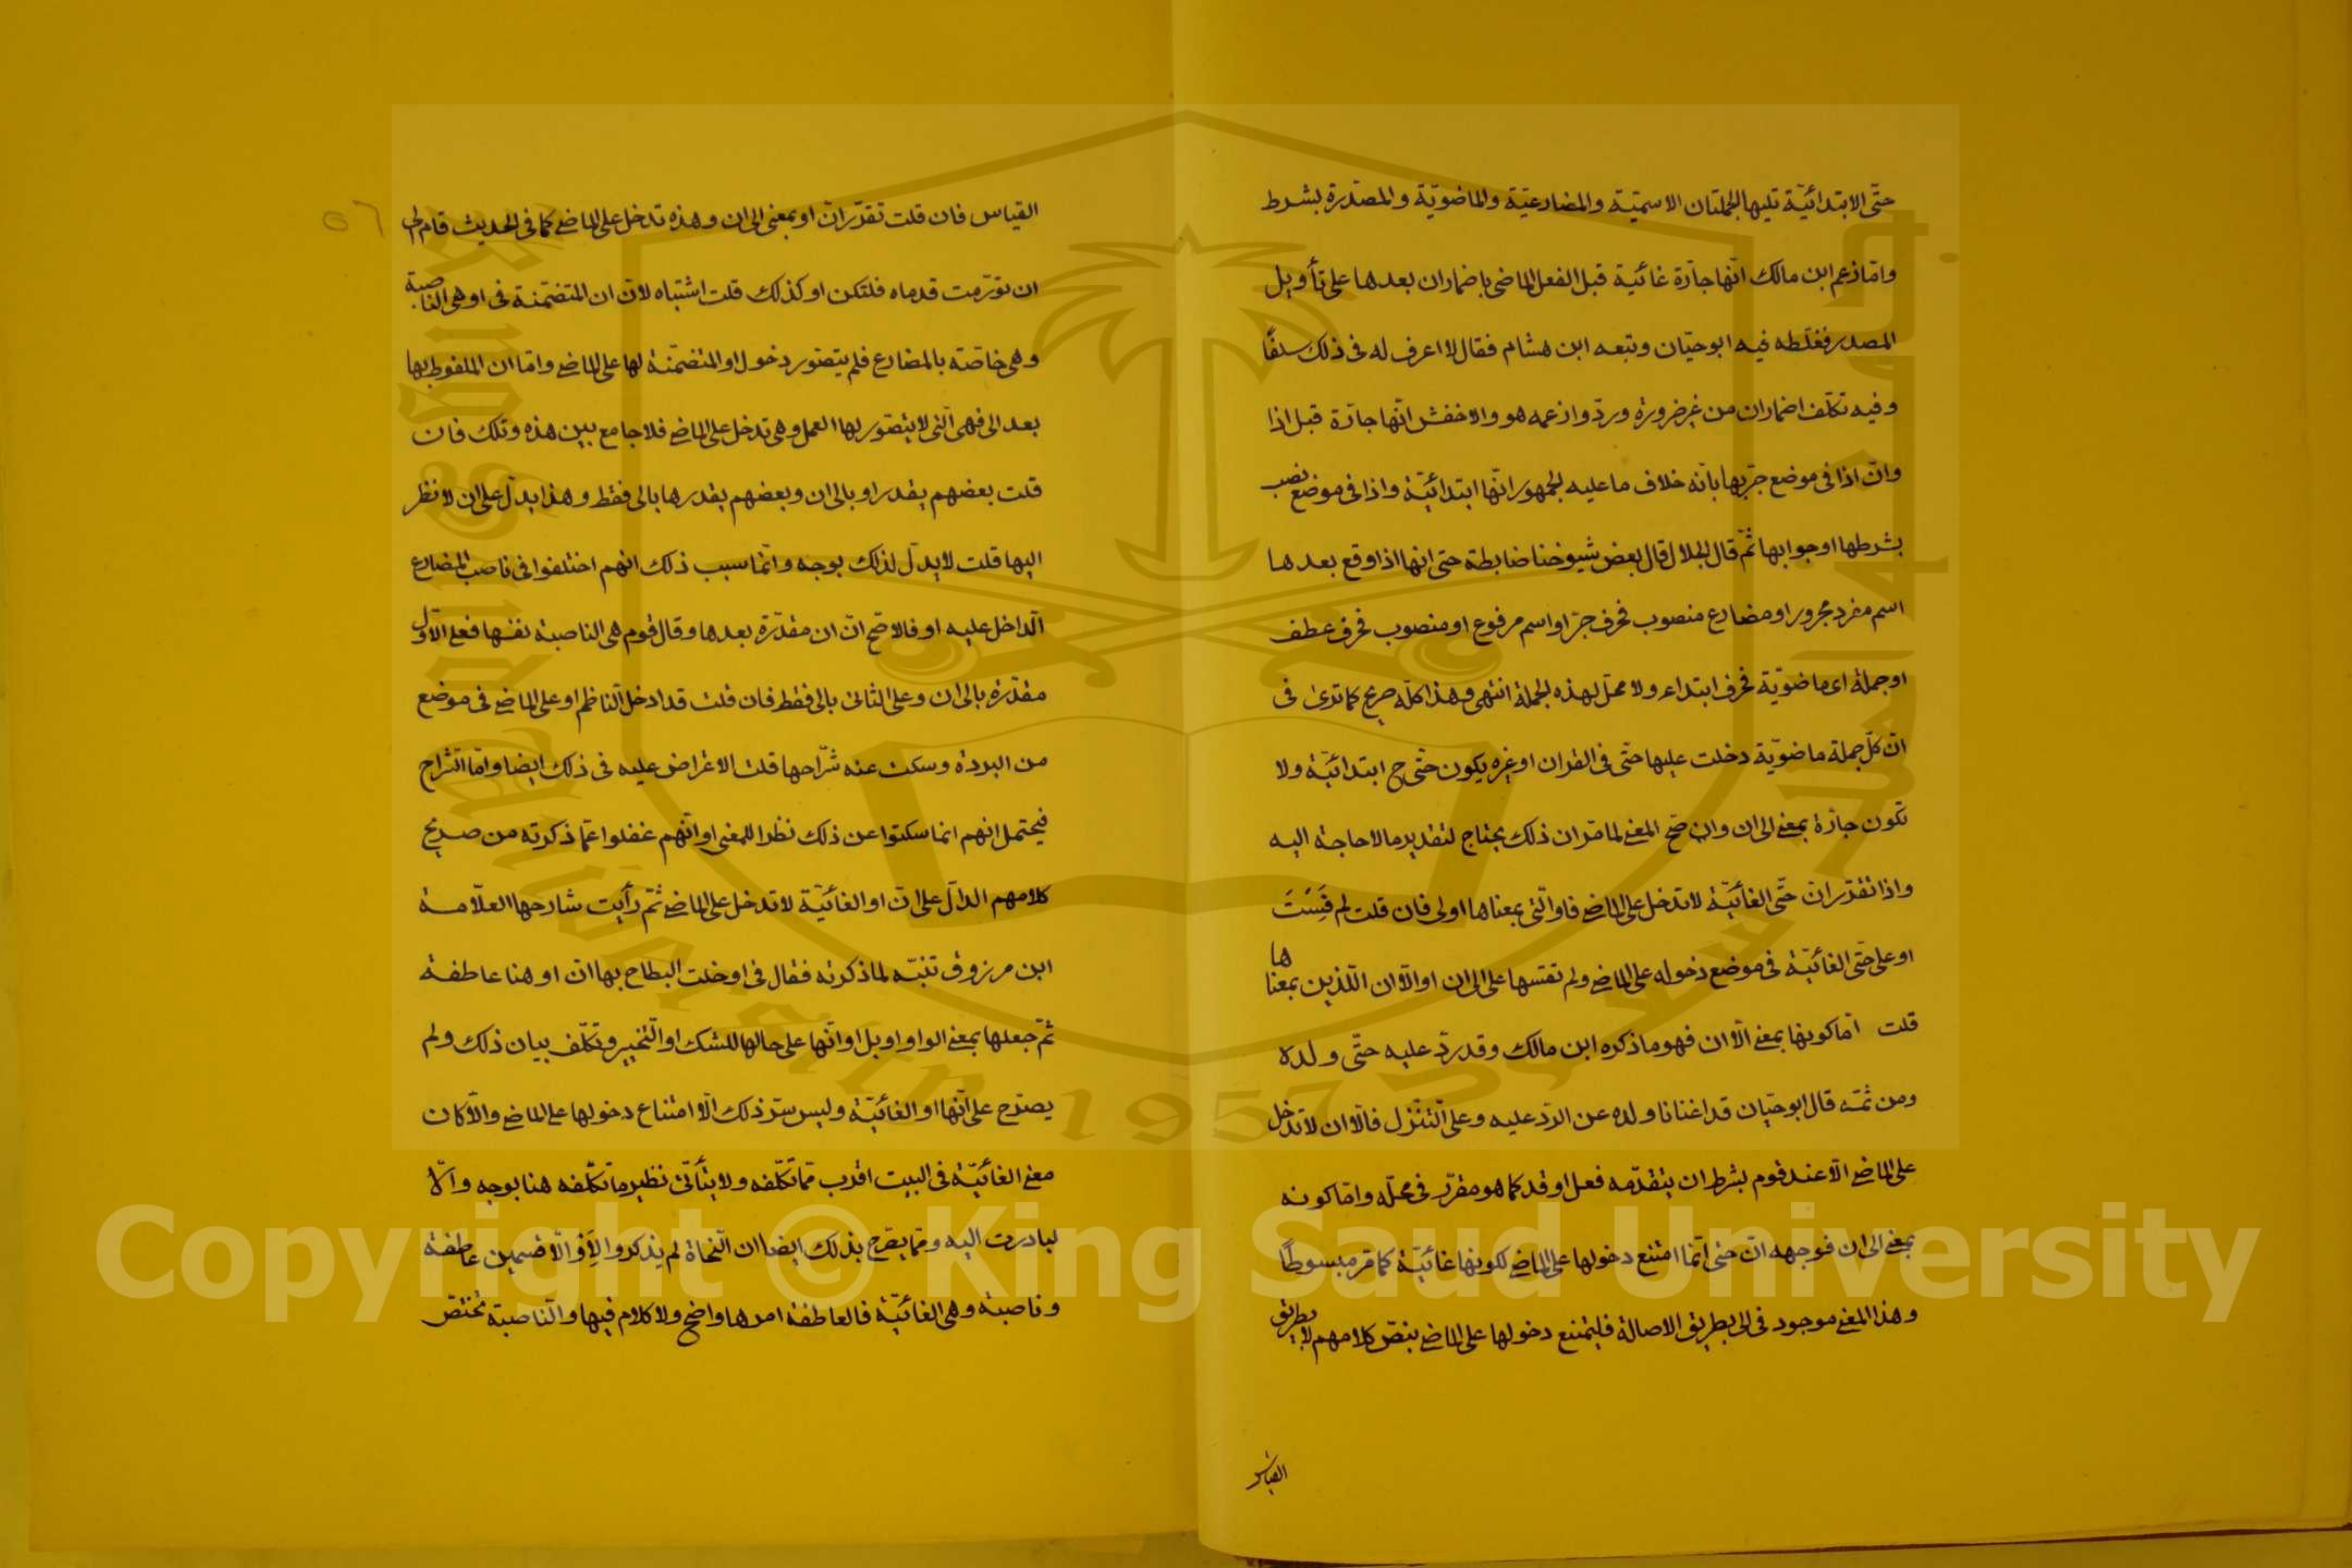 حتّى الابتدائيّة تليها الجملتان الاسميّة والمضارعيّة والماضويّة والمصدّرة بشرط
وامّا زعم ابن مالك انّها جارّة غائيّة قبل الفعل الماضى باضمار ان بعدها على تأويل
المصدر فغلّطه فيه ابو حيّان وتبعه ابن هشام فقال لا اعرف له فى ذلك سلفًا
وفيه تكلّف اضمار ان من غير ضرورة وردّوا زعمه هو والاخفش انّها جارّة قبل اذا
وانّ اذا فى موضع جرّ بها بانّه خلاف ما عليه الجمهور انّها ابتدائيّة واذا فى موضع نصب
بشرطها او جوابها ثمّ قال الجلال قال بعض شيوخنا ضابطة حتى انها اذا وقع بعدها
اسم مفرد مجرور او مضارع منصوب فحرف جرّ او اسم مرفوع او منصوب فحرف عطف
او جملة اى ماضويّة فحرف ابتداء ولا محلّ لهذه الجملة انتهى وهذا كلّه صريح كما ترى فى
انّ كلّ جملة ماضويّة دخلت عليها حتّى فى القران او غيره يكون حتّى ح ابتدائيّة ولا
تكون جارّة بمعنى الى ان وان صحّ المعنى لما مرّ ان ذلك يحتاج لتقدير ما لا حاجة اليه
واذا تقدّر انّ حتّى الغائيّة لا تدخل على الماضى فاو الّتى بمعناها اولى فان قلت لم قِسْتَ
او على حتّى الغائيّة فى موضع دخوله على الماضى ولم تقسها على الى ان او الّا ان اللّذين بمعناها
قلت امّا كونها بمعنى الّا ان فهو ما ذكره ابن مالك وقد ردّ عليه حتّى ولده
ومن ثمّه قال ابو حيّان قد اغنانا ولده عن الردّ عليه وعلى التّنزّل فالّا ان لا تدخل
على الماضى الّا عند قوم بشرط ان يتقدّمه فعل او قد كما هو مقرّر فى محلّه وامّا كونه
بمعنى الى ان فوجهه انّ حتى انّما امتنع دخولها على الماضى لكونها غائيّة كما مرّ مبسوطًا
وهذا المعنى موجود فى الى بطريق الاصالة فليمتنع دخولها على الماضى بنصّ كلامهم لا بطريق
القياس
٥٦
القياس فان قلت تقدّر انّ او بمعنى الى ان وهذه تدخل على الماضى كما فى الحديث قام الى
ان تورّمت قدماه فلتكن او كذلك قلت اشتباه لانّ ان المتضمّنة فى او هى الناصبة
وهى خاصّة بالمضارع فلم يتصّور دخول او المتضمّنة لها على الماضى وامّا ان الملفوظ بها
بعد الى فهى الّتى لا يتصّور لها العمل وهى تدخل على الماضى فلا جامع بين هذه وتلك فان
قلت بعضهم يقدر او بالى ان وبعضهم يقدرها بالى فقط وهذا يدلّ على ان لا نظر
اليها قلت لا يدلّ لذلك بوجه وانّما سبب ذلك انهم اختلفوا فى ناصب المضارع
الداخل عليه او فالاصّح انّ ان مقدّرة بعدها وقال قوم هى الناصبة نفسها فعلى الاوّل
مقدّرة بالى ان وعلى الثانى بالى فقط فان قلت قد ادخل النّاظم او على الماضى فى موضع
من البردة وسكت عنه شرّاحها قلت الاعتراض عليه فى ذلك ايضا وامّا الشّراح
فيحتمل انهم انما سكتوا عن ذلك نظرا للمعنى او انّهم غفلوا عمّا ذكرته من صريح
كلامهم الدالّ على انّ او الغائيّة لا تدخل على الماضى ثمّ رأيت شارحها العلّامة
ابن مرزوق تنبّه لما ذكرته فقال فى او خلت البطاح بها انّ او هنا عاطفة
ثمّ جعلها بمعنى الواو او بل او انّها على حالها للشك او التّخيير وتكلّف بيان ذلك ولم
يصرّح على انّها او الغائيّة وليس سرّ ذلك الّا امتناع دخولها على الماضى والّا كان
معنى الغائيّة فى البيت اقرب ممّا تكّلفه ولا يتأتّى نظير ما تكّلفه هنا بوجه والّا
لبادرت اليه وممّا يصّرح بذلك ايضا ان النّحاة لم يذكروا لأو الّا قسمين عاطفة
وناصبة وهى الغائيّة فالعاطفة امرها واضح ولا كلام فيها والنّاصبة تختصّ
Copyright © King Saud University
1957